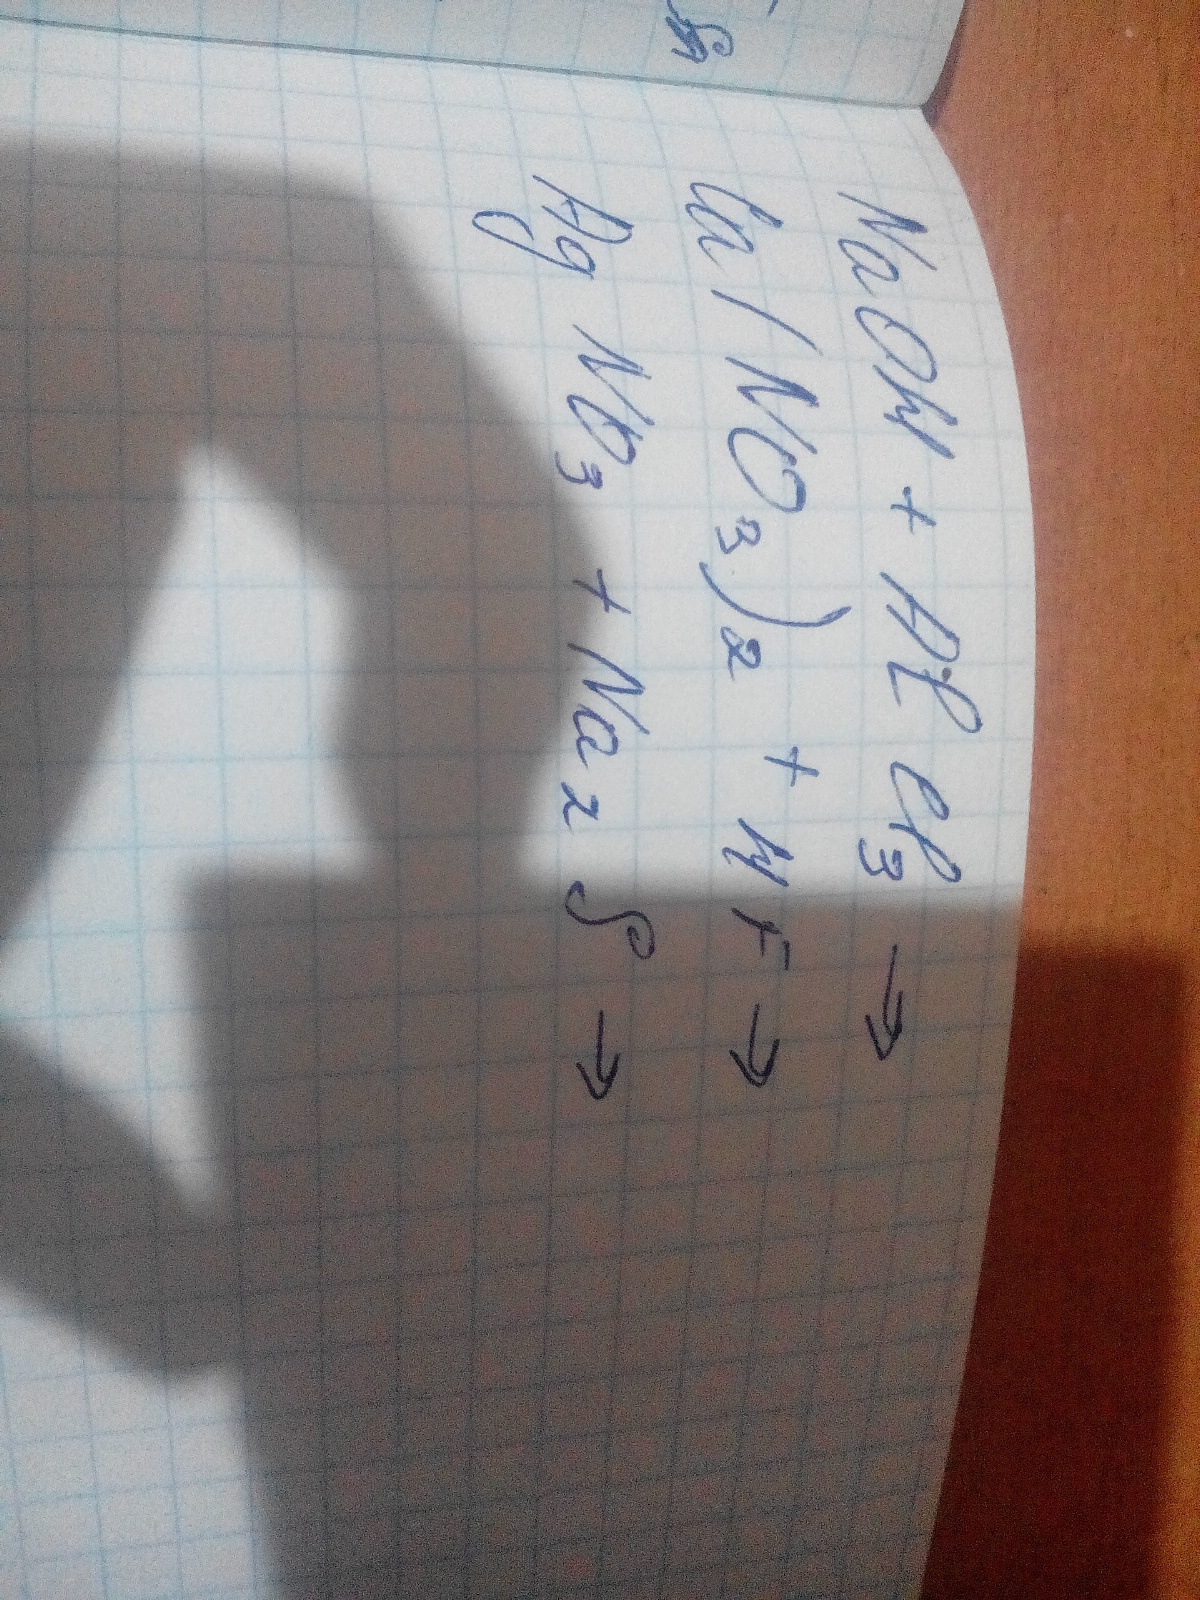 NaOH + AlCl₃ →
Ca(NO₃)₂ + HF →
AgNO₃ + Na₂S →